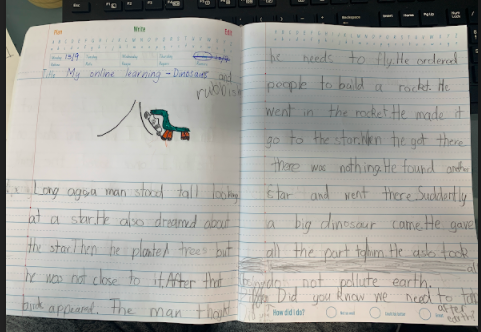 Plan
Write
Edit
Title My online learning - Dinosaurs
and
rubbish
Long ago a man stood tall looking
at a star. He also dreamed about
the star. Then he planted trees but
he was not close to it. After that
appeared. The man thought
he needs to fly. He ordered
people to build a rocket. He
went in the rocket. He made it
go to the star. When he got there
there was nothing. He found another
star and went there. Suddently
a big dinosaur came. He gave
all the part to him. He also took
do not pollute earth.
Did you know we need to
after
earth?
How did I do?